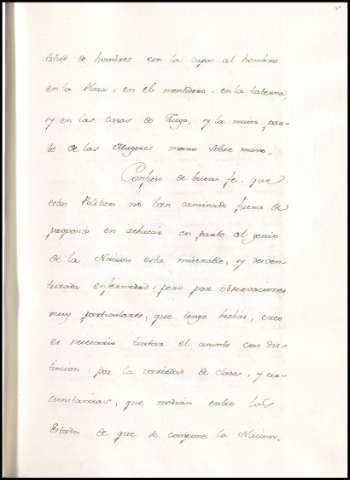 de hombres con la capa al hombro
en la Plaza, en el mentidero, en la taberna,
y en las casas de Juego, y la maior par-
te de las Mugeres mano sobre mano.
Confieso de buena fe, que
estos Politicos no han caminado fuera de
proposito en
de la Nacion esta miserable, y desven-
turada enfermedad; pero por observaciones
muy particulares, que tengo hechas, creo
es necesario tratar el asunto con dis-
tincion, por la variedad de clases, y cir-
cunstancias, que median entre los
Estados de que se compone la Nacion.